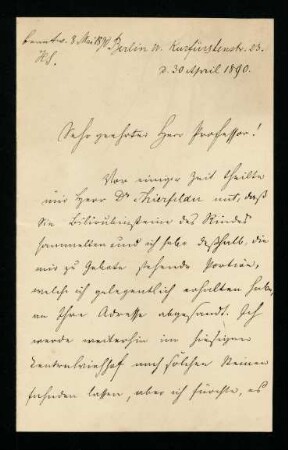 beantw. 8 Mai 90. Berlin W. Kurfürstenstr. 53.
HS.
d. 30 April 1890.
Sehr geehrter Herr Professor!
Vor einiger Zeit theilte
mir Herr Dr Thierfelder mit, daß
Sie Bilirubinsteine des Rindes
sammelten und ich habe deßhalb, die
mir zu Gebote stehende Portion,
welche ich gelegentlich erhalten habe,
an Ihre Adresse abgesandt. Ich
werde weiterhin im hiesigen
Centralviehhof nach solchen Steinen
fahnden lassen, aber ich fürchte, es